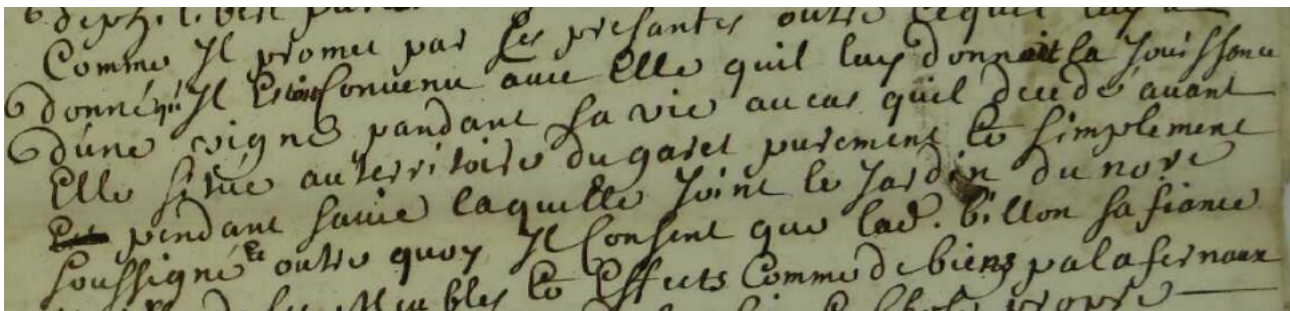 Comme Il promet par ses presantes outre lequel
donné qu'Il Estoit Convenu avec Elle quil luy donnoit la Jouissance
d'une vigne pandant sa vie au cas quil decedé avant
Elle située au territoire du garet purement Et simplement
pendant sa vie laquelle Joint le Jardin du no.re
soussigné Et outre quoy Il Consent que lad. billon sa fiance
Meubles Et Effects Comme de biens palafernaux